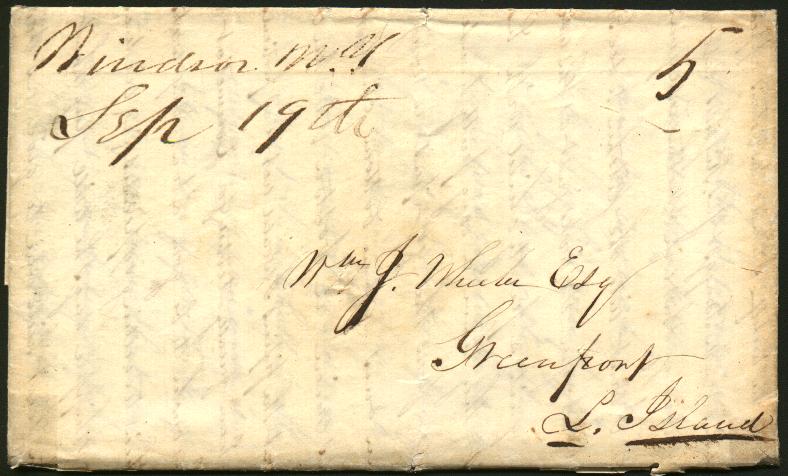 Windsor N.Y
5
Sep 19th
Wm J. Wheeler Esq
Greenport
L. Island